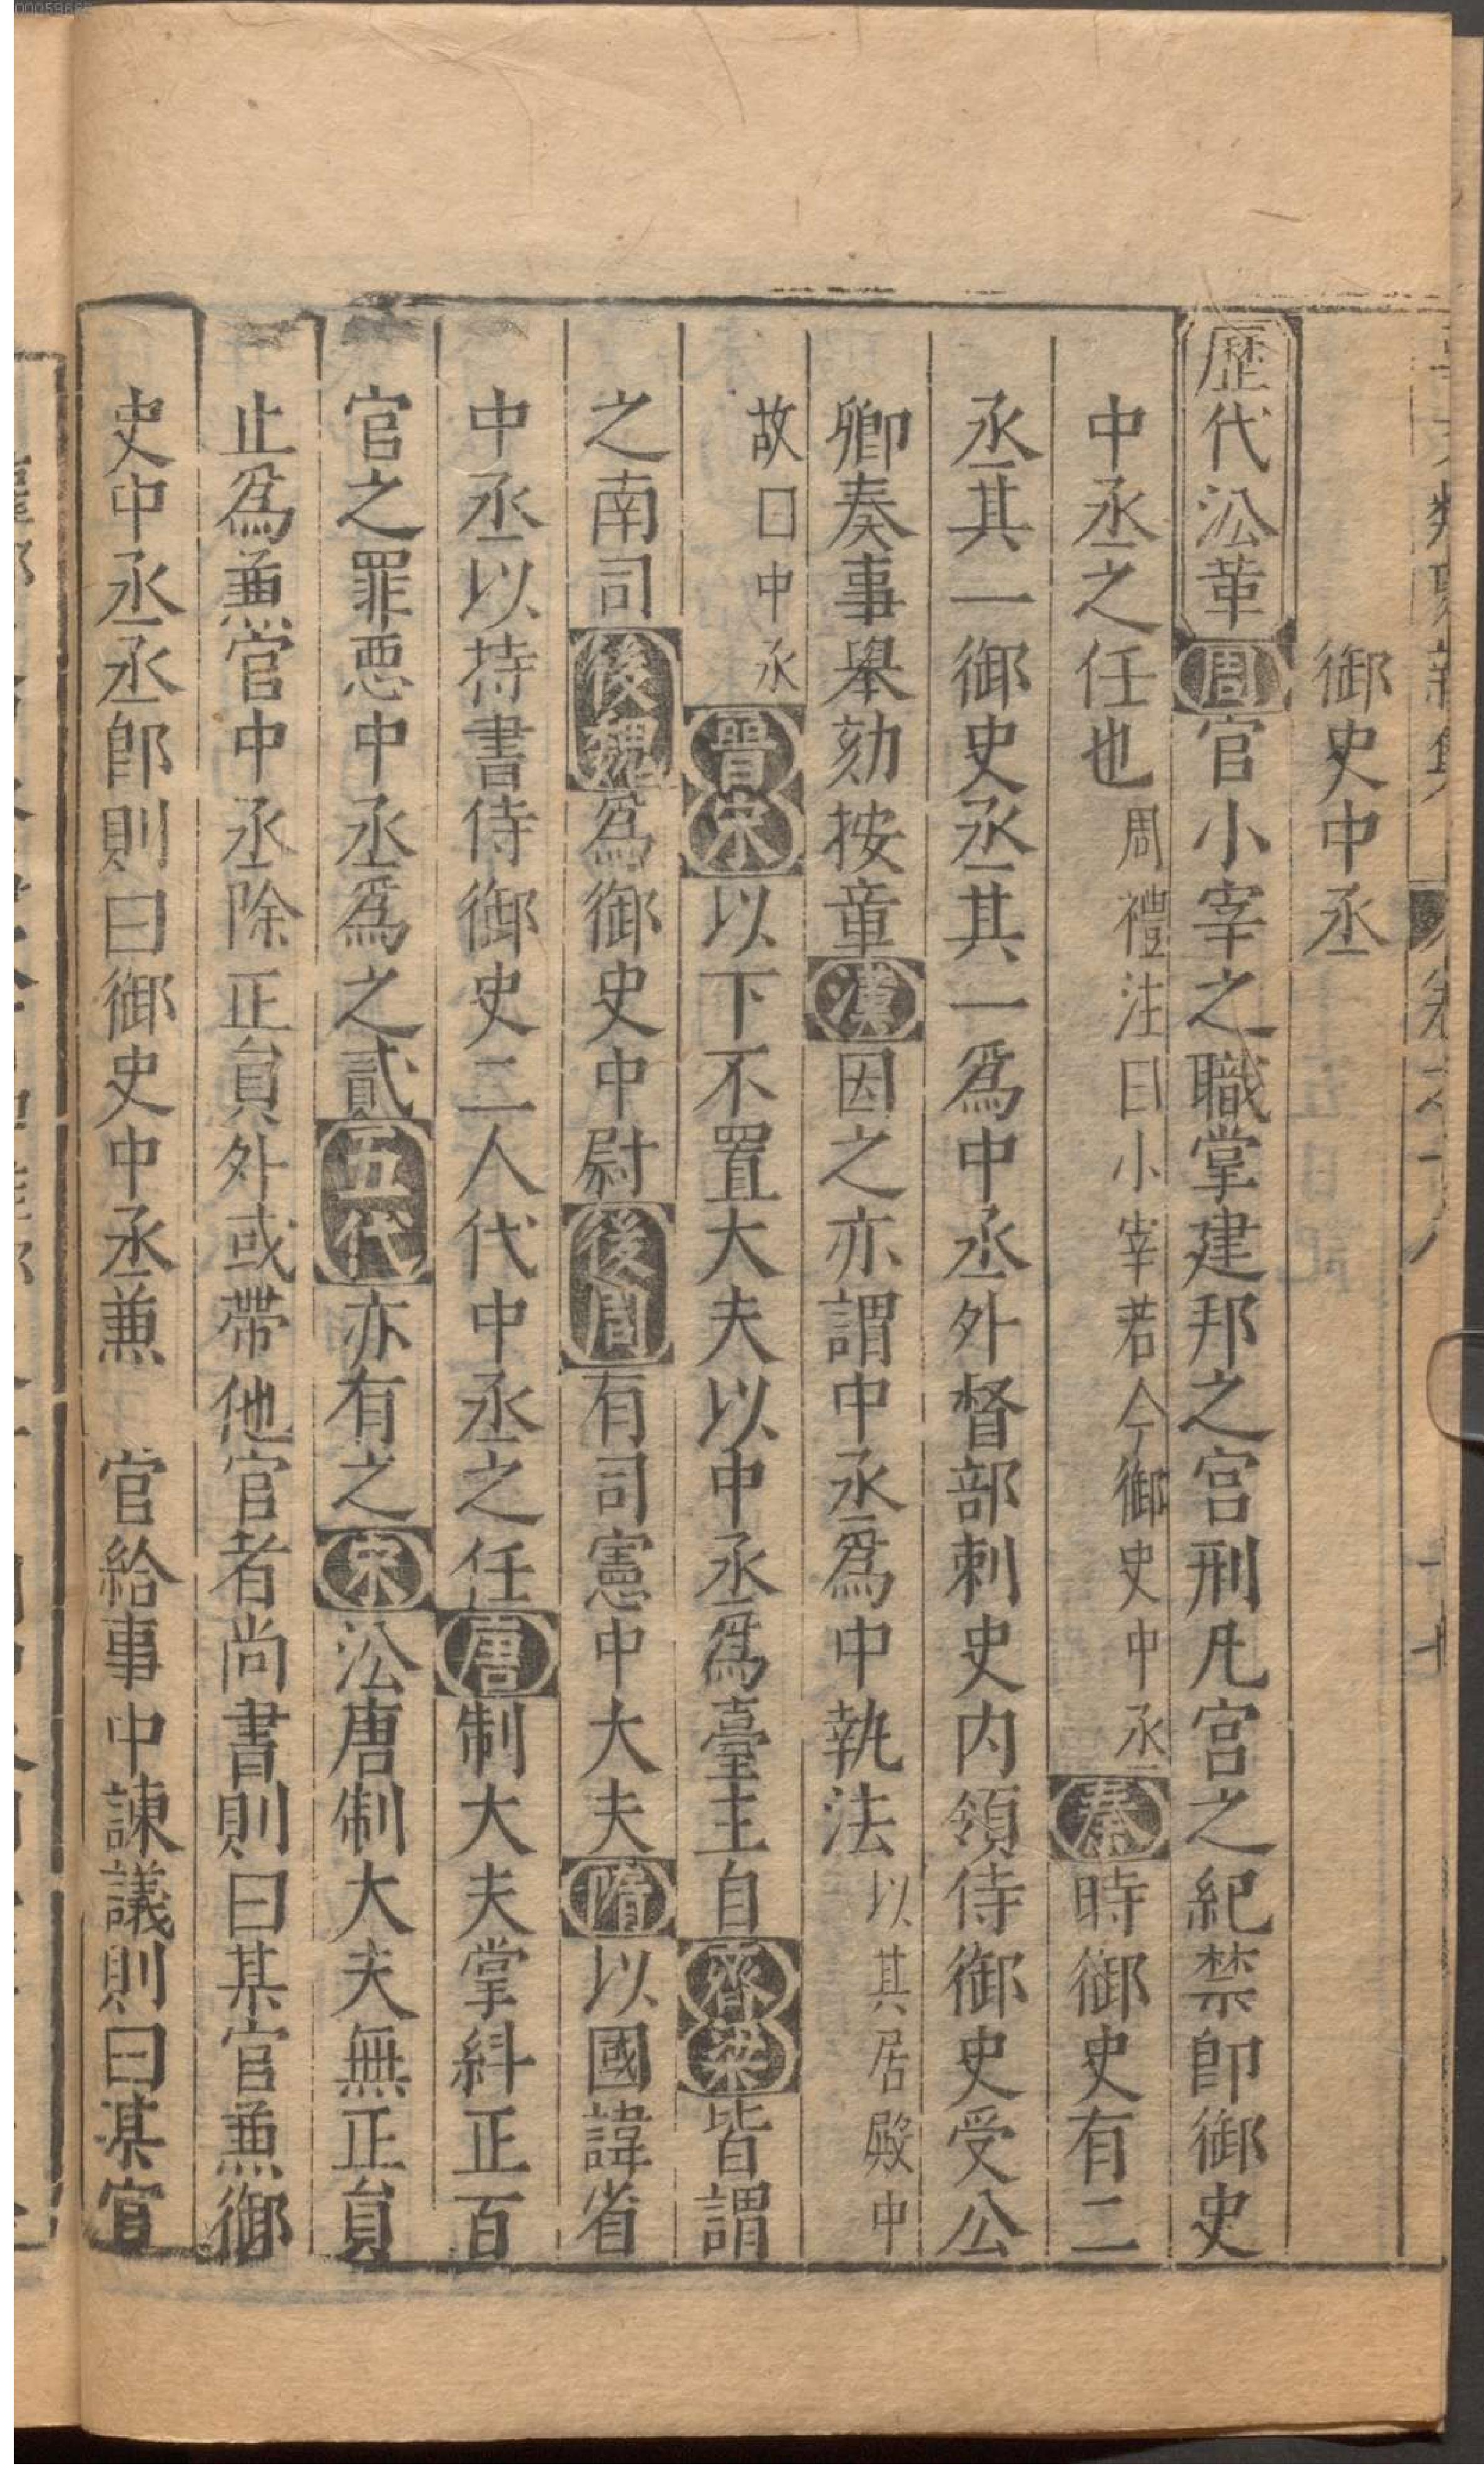 御史中丞
歷代㳂革周官小宰之職掌建邦之宫刑凡宫之紀禁卽御史
中丞之任也周禮注曰小宰若今御史中丞秦時御史有二
丞其一御史丞其一爲中丞外督部刺史内領侍御史受公
卿奏事舉劾按章漢因之亦謂中丞爲中執法以其居殿中
故曰中丞晉宋以下不置大夫以中丞爲臺主自齊梁皆謂
之南司後魏爲御史中尉後周有司憲中大夫隋以國諱省
中丞以持書侍御史二人代中丞之任唐制大夫掌糾正百
官之罪惡中丞爲之貳五代亦有之宋㳂唐制大夫無正貟
止爲兼官中丞除正貟外或帶他官者尚書則曰某官兼御
史中丞丞郎則曰御史中丞兼 官給事中諫議則曰某官